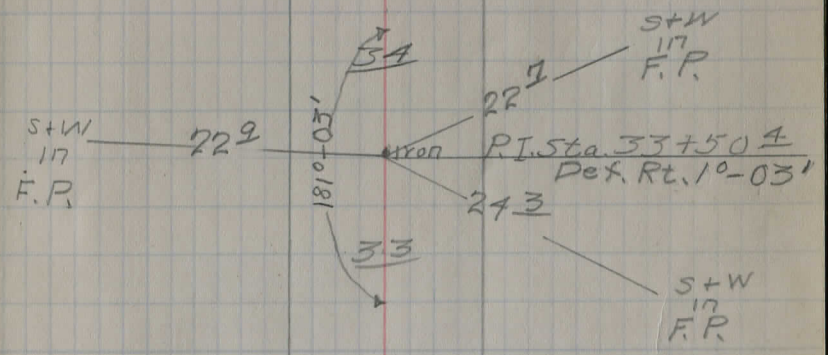 S+W
in
F.P.
34
22 1
S+W
in
F.P.
22 9
181°-03'
iron
P.I. Sta. 33+50 4
Def. Rt. 1°-03'
24 3
33
S+W
in
F.P.